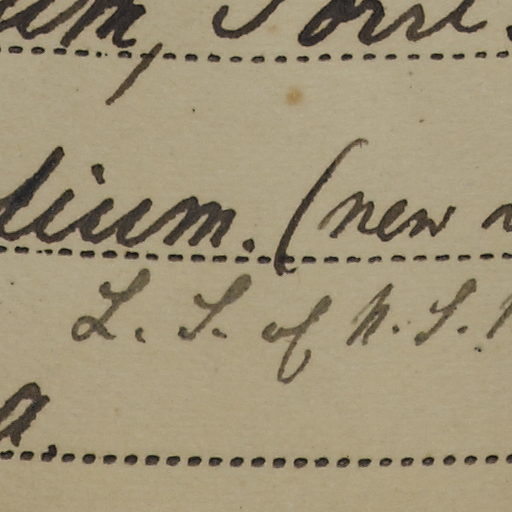 um, Torr
lium. (new
L. S. of N. S.
a.